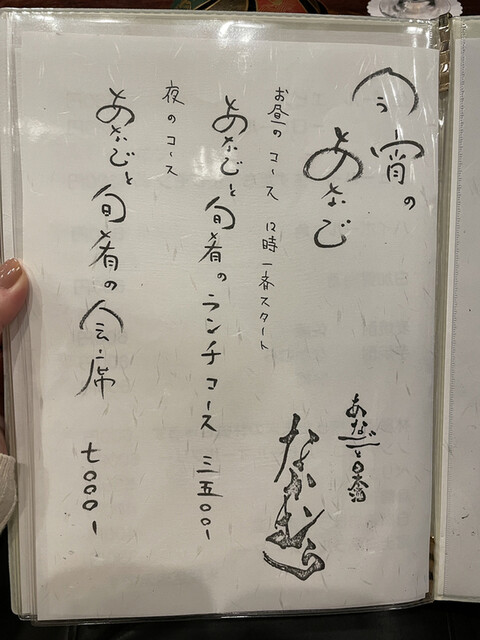 今宵の
あなご
お昼のコース 12時一斉スタート
あなごと旬肴のランチコース 三五〇〇-
夜のコース
あなごと旬肴の会席 七〇〇〇-
あなごと日本酒
なかむら